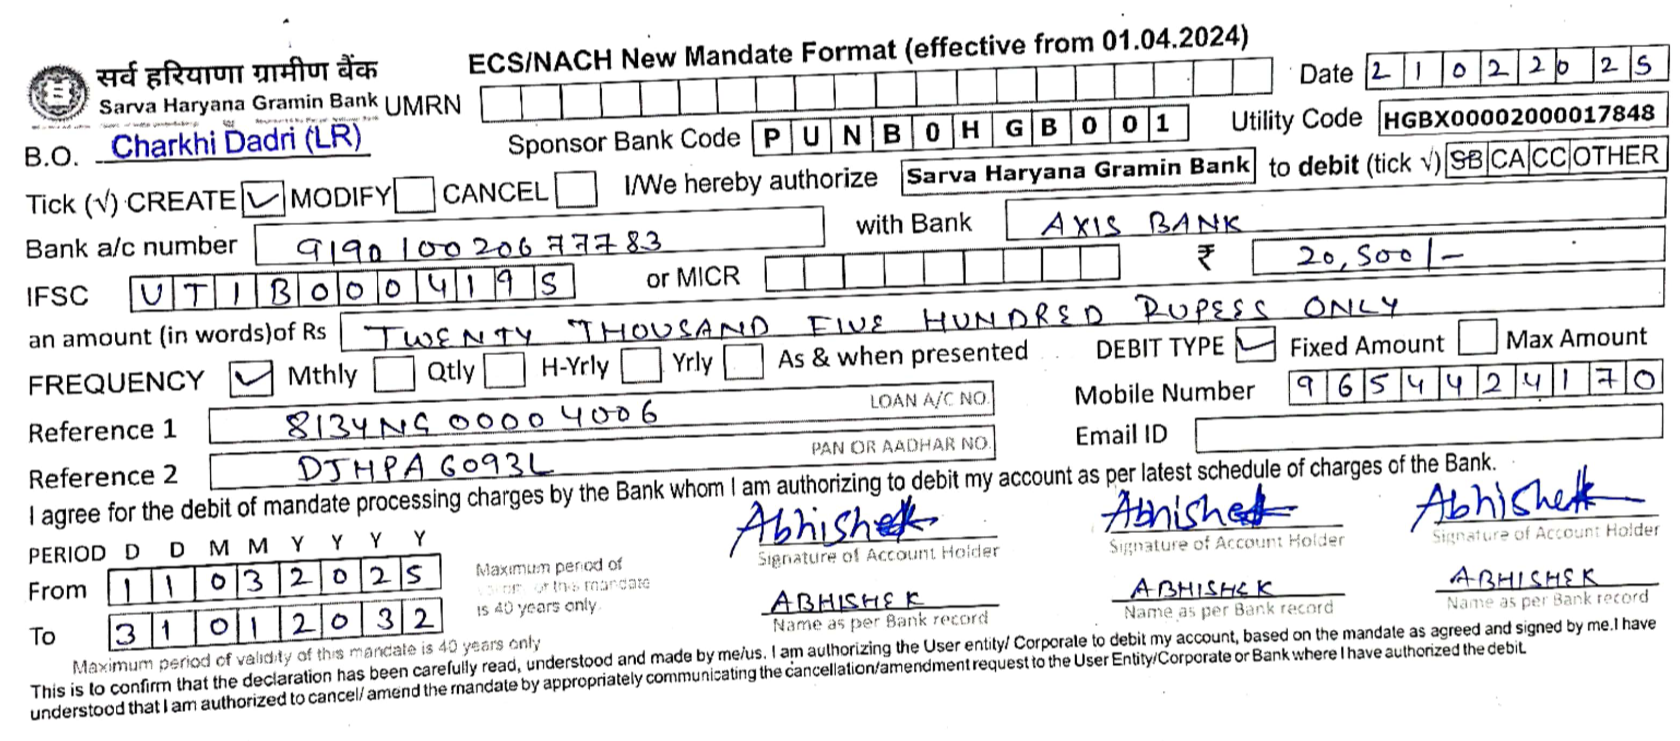 ECS/NACH New Mandate Format (effective from 01.04.2024)
सर्व हरियाणा ग्रामीण बैंक
Sarva Haryana Gramin Bank UMRN Date 21022025
B.O. Charkhi Dadri (LR) Sponsor Bank Code PUNB0HGB001 Utility Code HGBX00002000017848
Tick (√) CREATE ✓ MODIFY CANCEL I/We hereby authorize Sarva Haryana Gramin Bank to debit (tick √) SB CA CC OTHER
Bank a/c number 919010020677783 with Bank AXIS BANK
IFSC UTIB00004195 or MICR ₹ 20,500/-
an amount (in words)of Rs TWENTY THOUSAND FIVE HUNDRED RUPEES ONLY
FREQUENCY ✓ Mthly Qtly H-Yrly Yrly As & when presented DEBIT TYPE ✓ Fixed Amount Max Amount
Reference 1 8134NG00004006 LOAN A/C NO. Mobile Number 9654424170
Reference 2 DJHPA6093L PAN OR AADHAR NO. Email ID
I agree for the debit of mandate processing charges by the Bank whom I am authorizing to debit my account as per latest schedule of charges of the Bank.
PERIOD D D M M Y Y Y Y
From 11032025
To 31012032
Maximum period of
of this mandate
is 40 years only.
Abhishek Abhishek Abhishek
Signature of Account Holder Signature of Account Holder Signature of Account Holder
ABHISHEK ABHISHEK ABHISHEK
Name as per Bank record Name as per Bank record Name as per Bank record
Maximum period of validity of this mandate is 40 years only
This is to confirm that the declaration has been carefully read, understood and made by me/us. I am authorizing the User entity/ Corporate to debit my account, based on the mandate as agreed and signed by me.I have
understood that I am authorized to cancel/ amend the mandate by appropriately communicating the cancellation/amendment request to the User Entity/Corporate or Bank where I have authorized the debit.